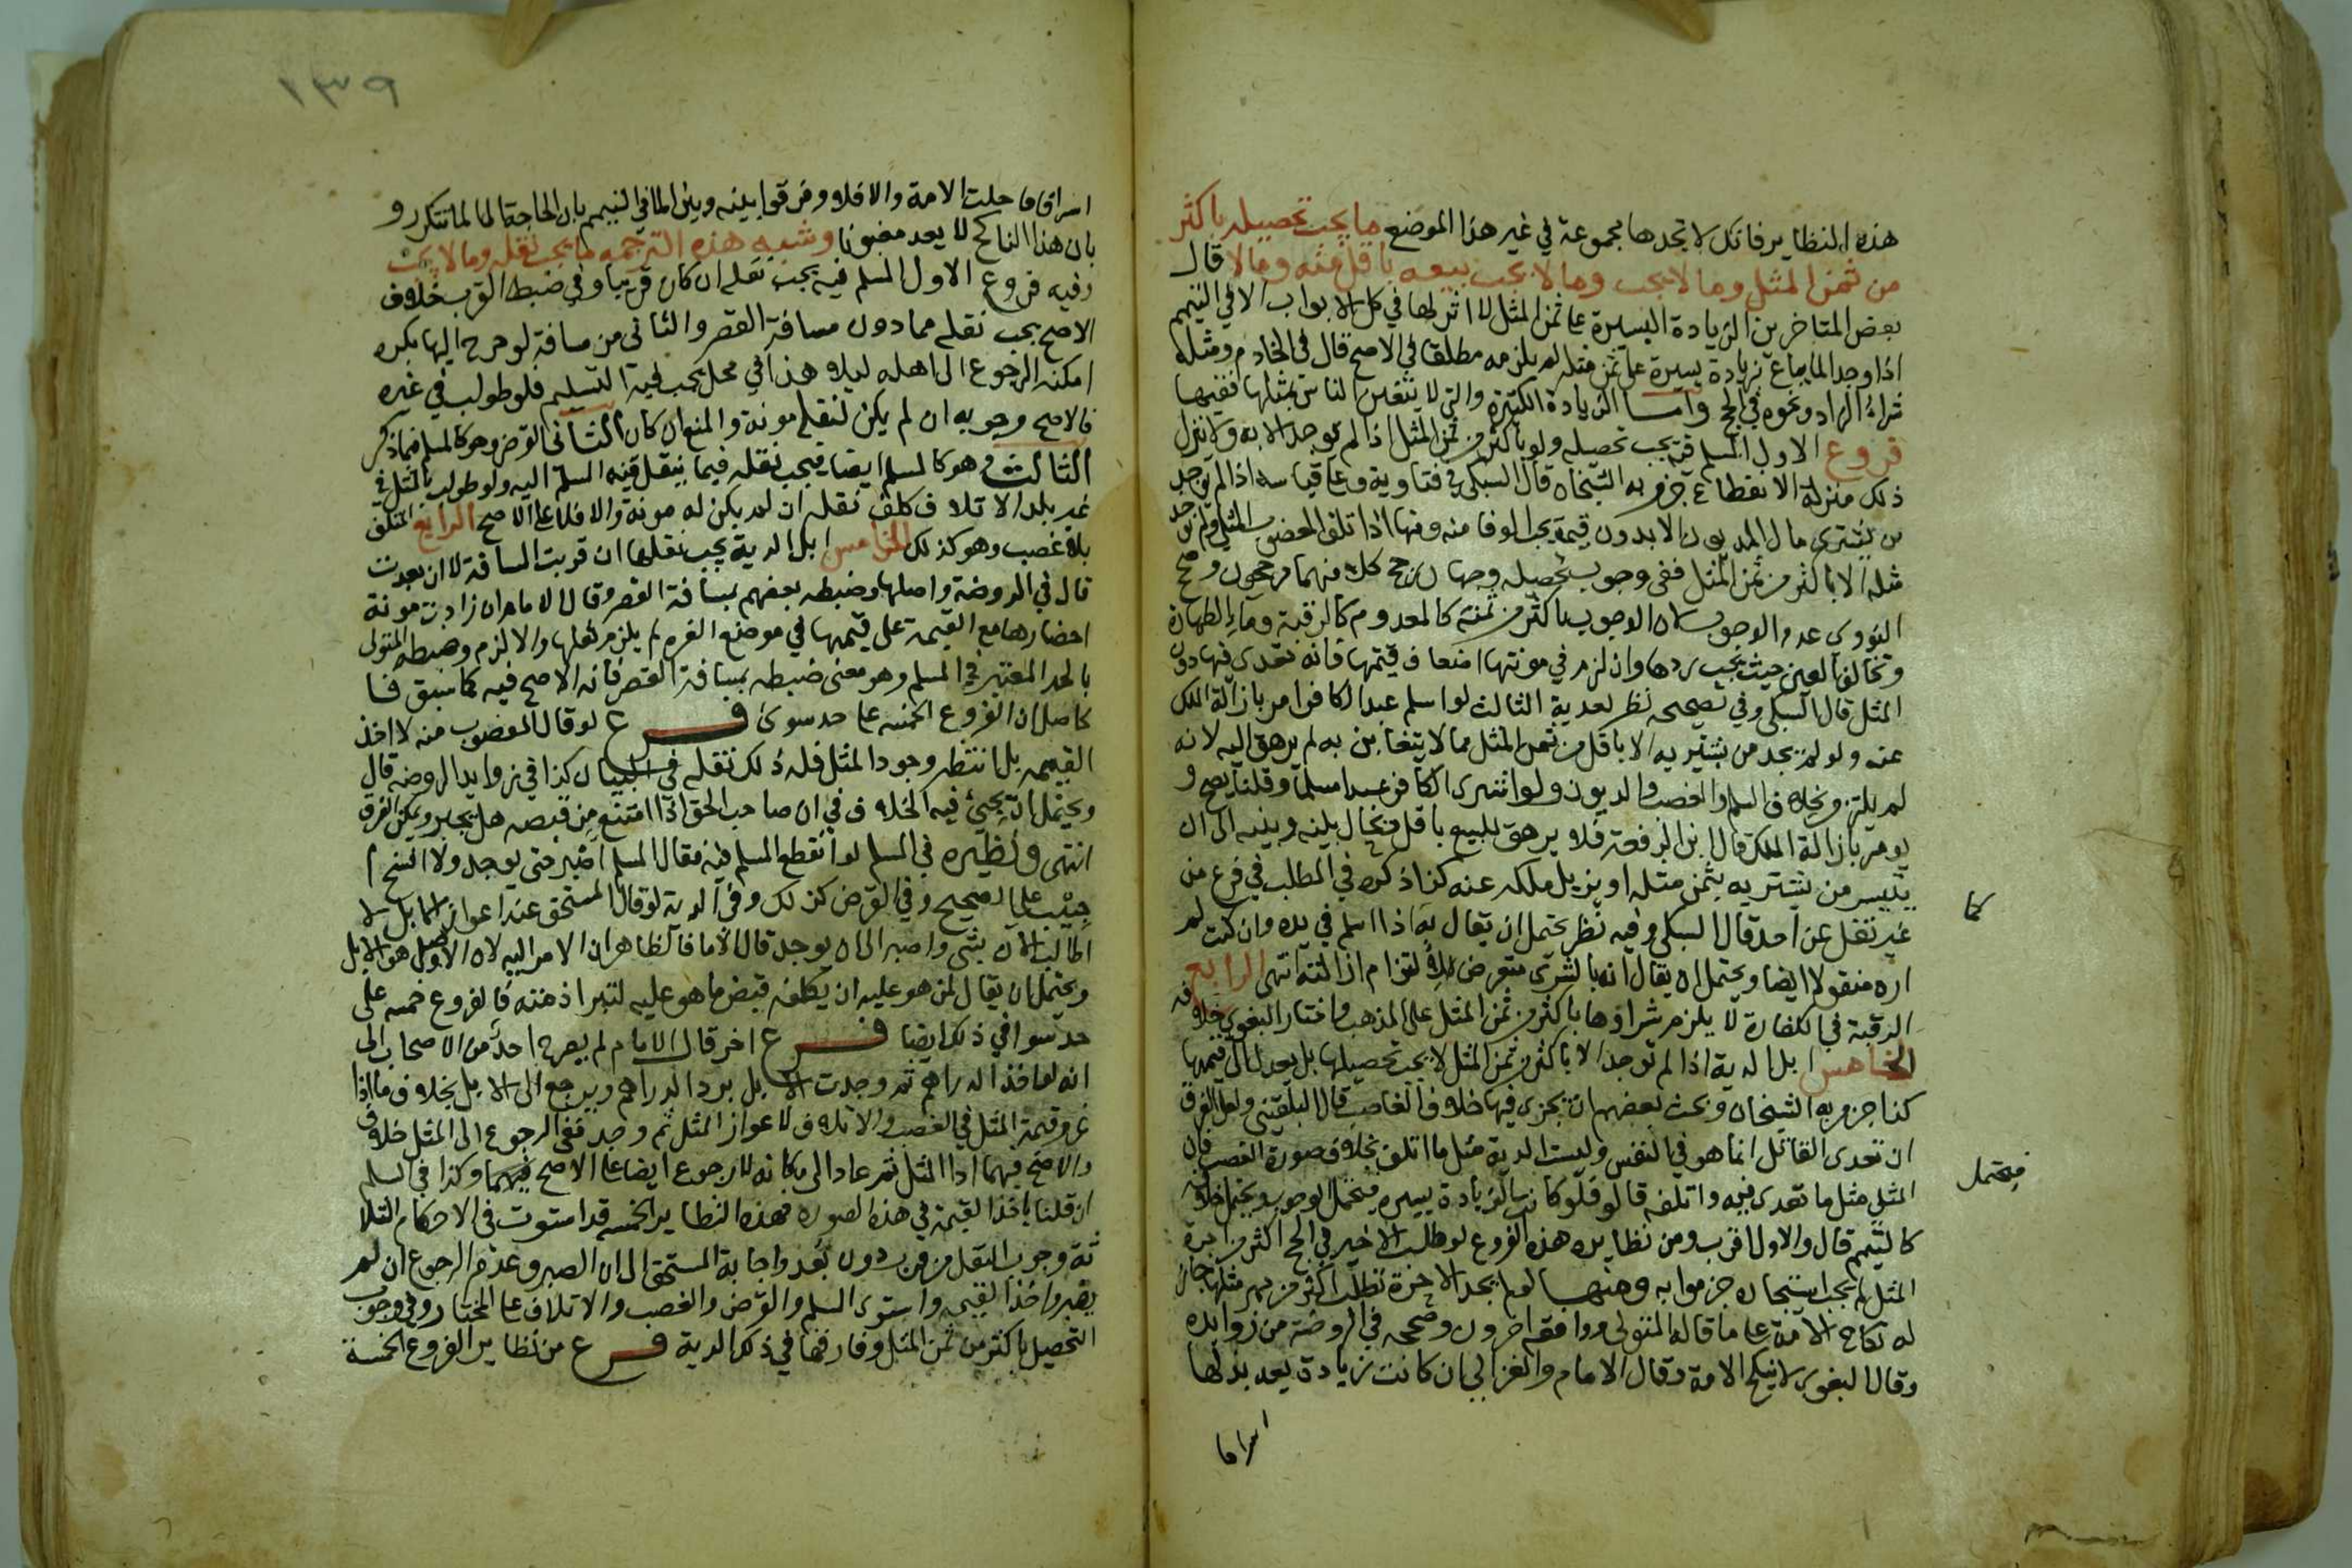 هذه النظاير فانك لا تجدها مجموعة في غير هذا الموضع ما يجب تحصيله باكثر
من ثمن المثل وما لا يجب وما لا يجب بيعه باقل منه وما لا قال
بعض المتاخرين الزيادة اليسيرة على ثمن المثل لا اثر لها في كل الابواب الا في التيمم
اذا وجد الما يباع بزيادة يسيرة على ثمن مثله لم يلزمه مطلقا في الاصح قال في الخادم ومثله
شراء الزاد ونحوه في الحج واما الزيادة الكثيرة والتي لا يتغابن الناس بمثلها ففيها
فروع الاول المسلم فيه يجب تحصيله ولو باكثر من ثمن المثل اذا لم يوجد الا به ولا ينزل
ذلك منزلة الانقطاع جزم به الشيخان قال السبكي في فتاويه وعلى قياسه اذا لم يوجد
من يشتري مال المديون الا بدون قيمته يجب الوفا منه ومنها اذا تلف المغصوب المثلي ولم يوجد
مثله الا باكثر من ثمن المثل ففي وجوب تحصيله وجهان رجح كلا منهما مرجحون وصحح
النووي عدم الوجوب لان الموجود باكثر من ثمنه كالمعدوم كالرقبة وماء الطهارة
وتخالف العين حيث يجب ردها وان لزم في مونتها اضعاف قيمتها فانه تعدى فيها دون
المثل قال السبكي وفي تصحيحه نظر لتعديه الثالث لو اسلم عبد الكافر امر بازالة الملك
عنه ولو لم يجد من يشتريه الا باقل من ثمن المثل مما لا يتغابن به لم يرهق اليه لانه
لم يلتزم بخلاف السلم والغصب والديون ولو اشترى الكافر عبدا مسلما وقلنا يصح و
يومر بازالة الملك قال ابن الرفعة فلا يرهق للبيع باقل فيحال بينه وبينه الى ان
يتيسر من يشتريه بثمن مثله او يزيل ملكه عنه كذا ذكره في المطلب في فرع من
كما
غير نقل عن احد قال السبكي وفيه نظر يحتمل ان يقال به اذا اسلم في يده وان كنت لم
اره منقولا ايضا ويحتمل ان يقال انه بالشرى متعرض لالتزام ازالته انتهى الرابع
الرقبة في الكفارة لا يلزم شراوها باكثر من ثمن المثل على المذهب واختار البغوي خلافه
الخامس ابل الدية اذا لم توجد الا باكثر من ثمن المثل لا يجب تحصيلها بل يعدل الى قيمتها
كذا جزم به الشيخان وبحث بعضهم ان يجري فيها خلاف الغاصب قال البلقيني ولعل الفرق
ان تعدى القاتل انما هو في النفس وليست الدية مثل ما اتلف بخلاف صورة الغصب فان
فيحتمل
المثلي مثل ما تعدى فيه واتلفه قال ولو كانت الزيادة يسيره فيحتمل الوجوب ويحتمل خلافه
كالتيمم قال والاول اقرب ومن نظاير هذه الفروع لو طلب الاجير في الحج اكثر من اجرة
المثل لم يجب استيجاره جزموا به ومنها لو لم يجد الا حرة تطلب اكثر من مهر مثلها جاز
له نكاح الامة على ما قاله المتولي ووافقه اخرون وصححه في الروضة من زوايده
وقال البغوي لا ينكح الامة وقال الامام والغزالي ان كانت زيادة يعد بذلها
اسرافا
١٣٩
اسرافا حلت الامة والا فلا وفرقوا بينه وبين الما في التيمم بان الحاجة الى الما تتكرر و
بان هذا الناكح لا يعد مغبونا وشبيه هذه الترجمه ما يجب نقله وما لا يجب
وفيه فروع الاول المسلم فيه يجب نقله ان كان قريبا وفي ضبط القرب خلاف
الاصح يجب نقله مما دون مسافة القصر والثاني من مسافة لو خرج اليها بكره
امكنه الرجوع الى اهله ليلا هذا في محل يجب فيه التسليم فلو طولب في غيره
فالاصح وجوبه ان لم يكن لنقله مونة والمنع ان كان الثاني القرض وهو كالمسلم فيما ذكر
الثالث وهو كالمسلم ايضا فيجب نقله فيما ينقل فيه المسلم اليه ولو طولب بالمثل في
غير بلد الاتلاف كلف نقله ان لم يكن له مونة والا فلا على الاصح الرابع المتلف
بلا غصب وهو كذلك الخامس ابل الدية يجب نقلها ان قربت المسافة لا ان بعدت
قال في الروضة واصلها وضبطه بعضهم بمسافة القصر وقال الامام ان زادت مونة
احضارها مع القيمة على قيمتها في موضع الغرم لم يلزم نقلها والا لزم وضبطه المتولي
بالحد المعتبر في المسلم وهو معنى ضبطه بمسافة القصر فانه الاصح فيه كما سبق فا
لحاصل ان الفروع الخمسه على حد سوى فرع لو قال المغصوب منه لا اخذ
القيمه بل انتظر وجود المثل فله ذلك نقله في البيان كذا في زوايد الروضه قال
ويحتمل ان يجيى فيه الخلاف في ان صاحب الحق اذا امتنع من قبضه هل يجبر ويمكن الفرق
انتهى ونظيره في المسلم لو انقطع المسلم فيه فقال المسلم اصبر حتى يوجد ولا افسخ ا
جيب على الصحيح وفي القرض كذلك وفي الدية لو قال المستحق عند اعواز الابل لا
اطالب الان بشي واصبر الى ان يوجد قال الامام فالظاهر ان الامر اليه لان الاصل هو الابل
ويحتمل ان يقال لمن هو عليه ان يكلفه قبض ما هو عليه لتبرا ذمته فالفروع خمسه على
حد سوا في ذلك ايضا فرع اخر قال الامام لم يصرح احد من الاصحاب الى
انه لو اخذ الدراهم ثم وجدت الابل يرد الدراهم ويرجع الى الابل بخلاف ما اذا
غرم قيمة المثل في الغصب والاتلاف لاعواز المثل ثم وجد ففي الرجوع الى المثل خلاف
والاصح فيهما اذا المثل ثم عاد الى مكانه لا رجوع ايضا على الاصح فيهما وكذا في السلم
ان قلنا ياخذ القيمة في هذه الصوره فهذه النظاير الخمسه قد استوت في الاحكام الثلا
ثة وجوب النقل من قرب دون بعد واجابة المستحق الى الصبر وعدم الرجوع ان لم
يصبر واخذ القيمه واستوى السلم والقرض والغصب والاتلاف على المختار في وجوب
التحصيل باكثر من ثمن المثل وفارقها في ذلك الدية فرع من نظاير الفروع الخمسة